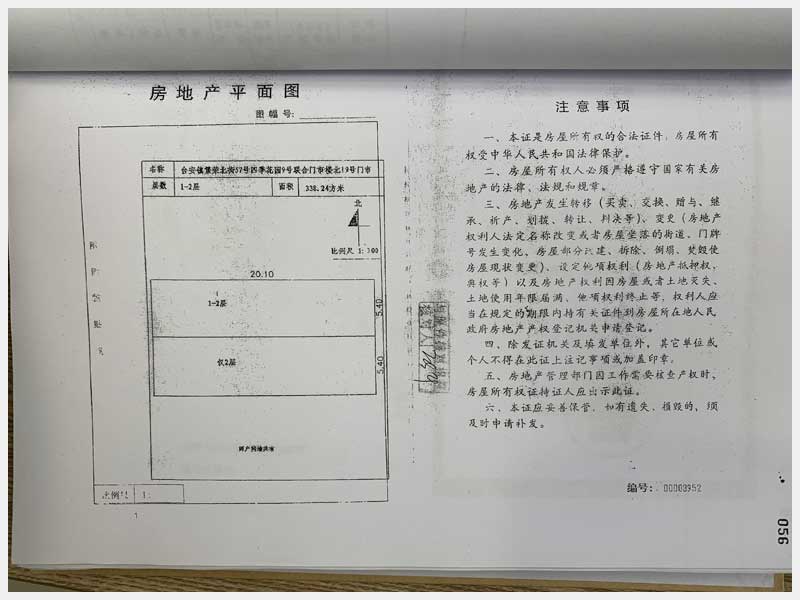 房地产平面图
图幅号:
名称 台安镇繁荣北街57号四季花园9号联合门市楼北19号门市
层数 1-2层 面积 338.24方米
北
比例尺 1:300
20.10
1-2层
5.40
仅2层
5.40
比例尺 1:
1
注意事项
一、本证是房屋所有权的合法证件，房屋所有
权受中华人民共和国法律保护。
二、房屋所有权人必须严格遵守国家有关房
地产的法律、法规和规章。
三、房地产发生转移（买卖、交换、赠与、继
承、析产、划拨、转让、判决等）、变更（房地产
权利人法定名称改变或者房屋坐落的街道、门牌
号发生变化，房屋部分改建、拆除、倒塌、焚毁使
房屋现状变更）、设定他项权利（房地产抵押权、
典权等）以及房地产权利因房屋或者土地灭失、
土地使用年限届满、他项权利终止等，权利人应
当在规定的期限内持有关证件到房屋所在地人民
政府房地产产权登记机关申请登记。
四、除发证机关及填发单位外，其它单位或
个人不得在此证上注记事项或加盖印章。
五、房地产管理部门因工作需要核查产权时，
房屋所有权证持证人应出示此证。
六、本证应妥善保管，如有遗失、损毁的，须
及时申请补发。
编号: 00003952
056